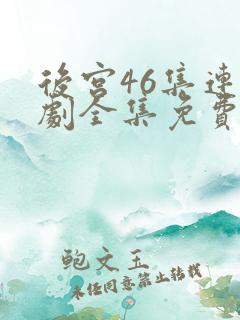 後宮46集連
劇全集免費
鲍文玉
未经同意禁止转载